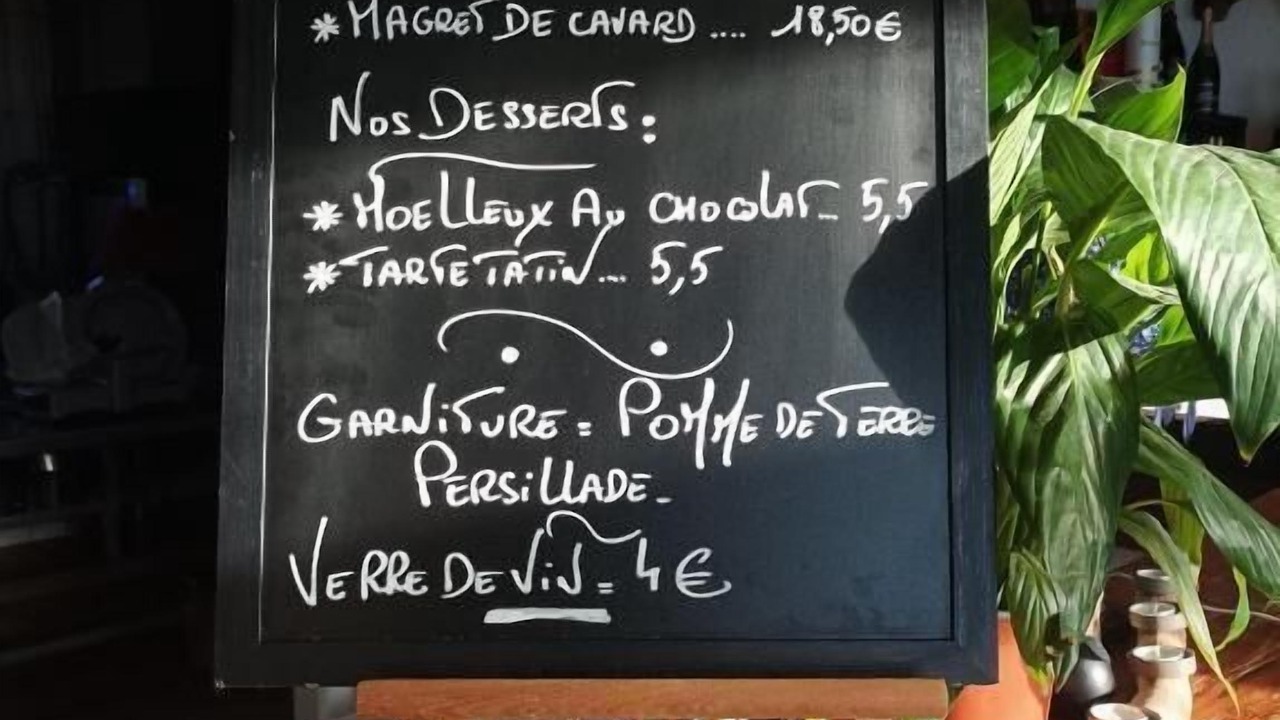 * MAGRET DE CANARD .... 18,50€
NOS DESSERTS :
* MOELLEUX AU CHOCOLAT_ 5,5
* TARTE TATIN... 5,5
GARNITURE = POMME DE TERRE
PERSILLADE_
VERRE DE VIN = 4 €